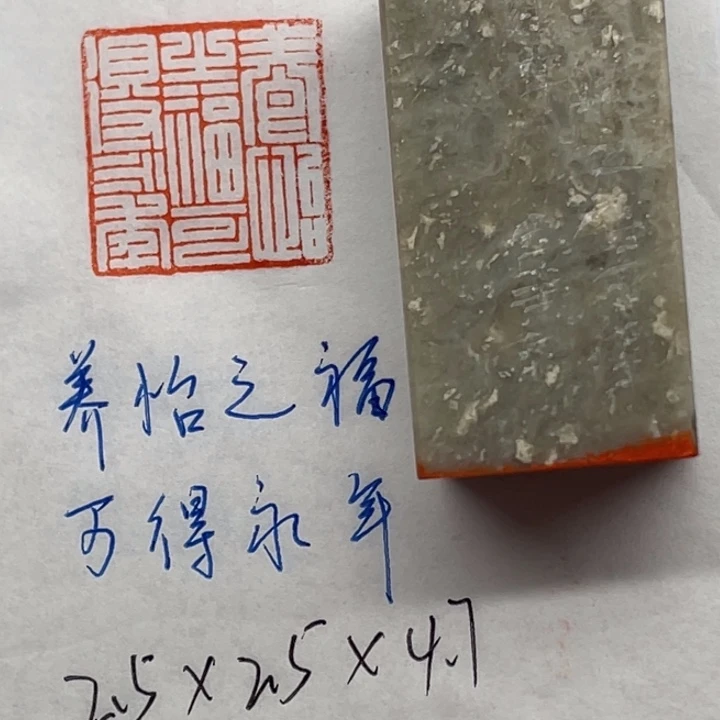 養怡
之福可
得永年
养怡之福
可得永年
2.5×2.5×4.7